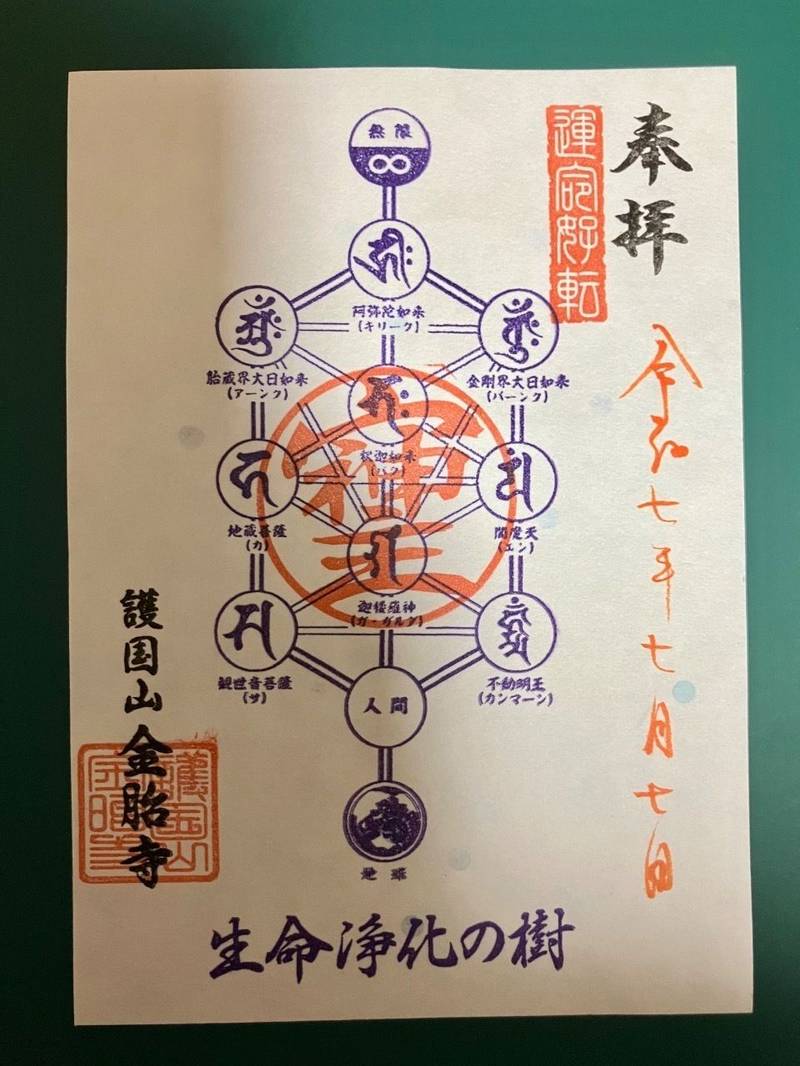 奉拝
運命好転
令和七年七月七日
無限
∞
阿弥陀如来
(キリーク)
胎蔵界大日如来
(アーンク)
金剛界大日如来
(バーンク)
釈迦如来
(バク)
地蔵菩薩
(カ)
閻魔天
(エン)
迦楼羅神
(ガ・ガルダ)
観世音菩薩
(サ)
不動明王
(カンマーン)
人間
地球
生命浄化の樹
護国山
金胎寺